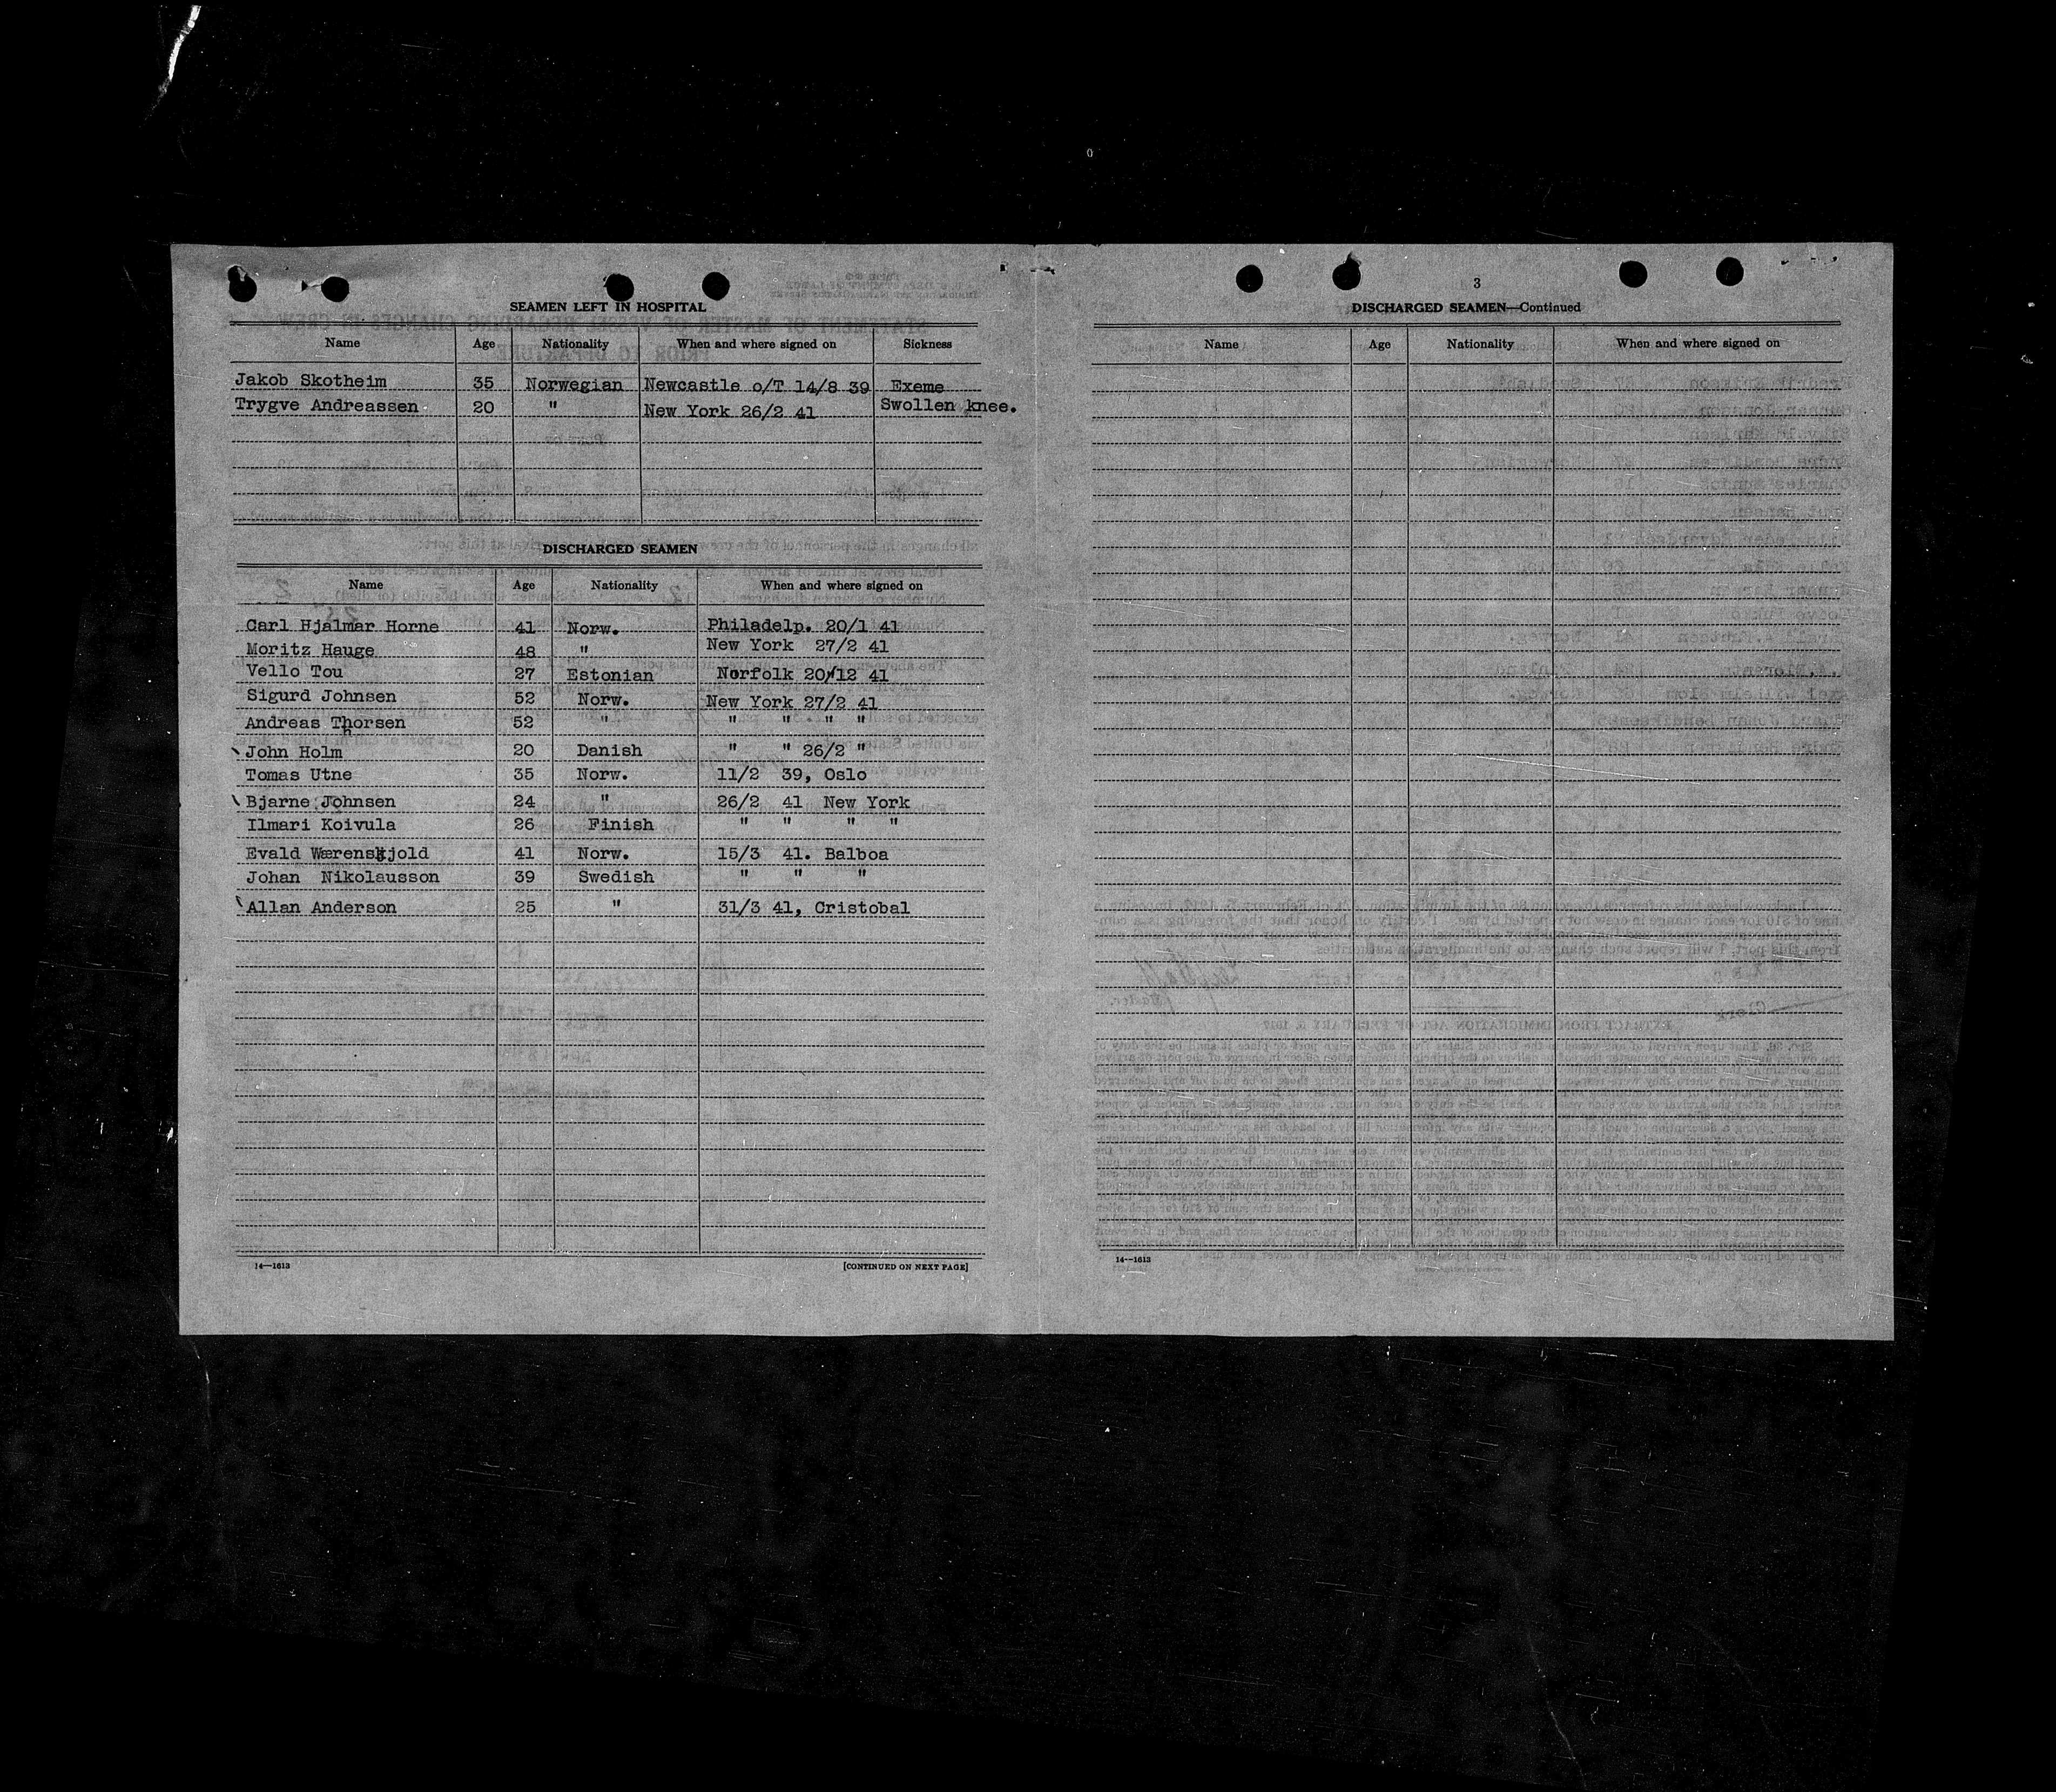 SEAMEN LEFT IN HOSPITAL
Name Age Nationality When and where signed on Sickness
Jakob Skotheim 35 Norwegian Newcastle o/T 14/8 39 Exeme
Trygve Andreassen 20 " New York 26/2 41 Swollen knee.
DISCHARGED SEAMEN
Name Age Nationality When and where signed on
Carl Hjalmar Horne 41 Norw. Philadelp. 20/1 41
Moritz Hauge 48 " New York 27/2 41
Vello Tou 27 Estonian Norfolk 20/12 41
Sigurd Johnsen 52 Norw. New York 27/2 41
Andreas Thorsen 52 " " " " "
John Holm 20 Danish " " 26/2 "
Tomas Utne 35 Norw. 11/2 39, Oslo
Bjarne Johnsen 24 " 26/2 41 New York
Ilmari Koivula 26 Finish " " " "
Evald Wærenskjold 41 Norw. 15/3 41. Balboa
Johan Nikolausson 39 Swedish " " "
Allan Anderson 25 " 31/3 41, Cristobal
14—1613 [CONTINUED ON NEXT PAGE]
3
DISCHARGED SEAMEN—Continued
Name Age Nationality When and where signed on
14—1613